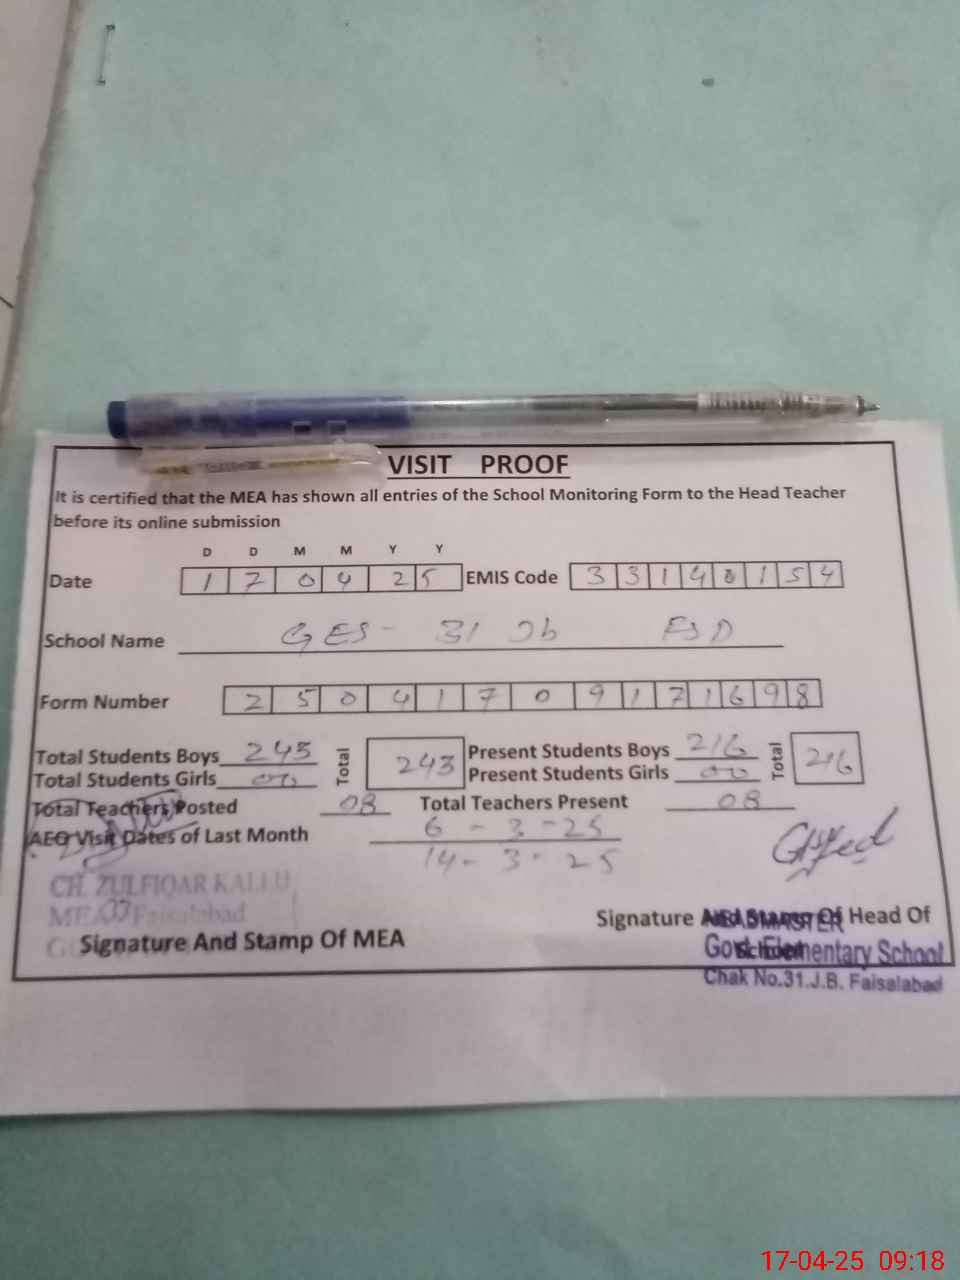 VISIT PROOF
It is certified that the MEA has shown all entries of the School Monitoring Form to the Head Teacher
before its online submission
D D M M Y Y
Date 1 7 0 4 2 5 EMIS Code 3 3 1 4 0 1 5 4
School Name GES- 31 Jb FSD
Form Number 2 5 0 4 1 7 0 9 1 7 1 6 9 8
Total Students Boys 243 Total 243 Present Students Boys 216 Total 216
Total Students Girls 00 Present Students Girls 00
Total Teachers Posted 08 Total Teachers Present 08
AEO Visit Dates of Last Month 6 - 3 - 25
14 - 3 - 25
CH. ZULFIQAR KALLU
MEA 37 Faisalabad
Signature And Stamp Of MEA
Signature And Stamp Of Head Of
School
HEADMASTER
Govt. Elementary School
Chak No.31.J.B. Faisalabad
17-04-25 09:18